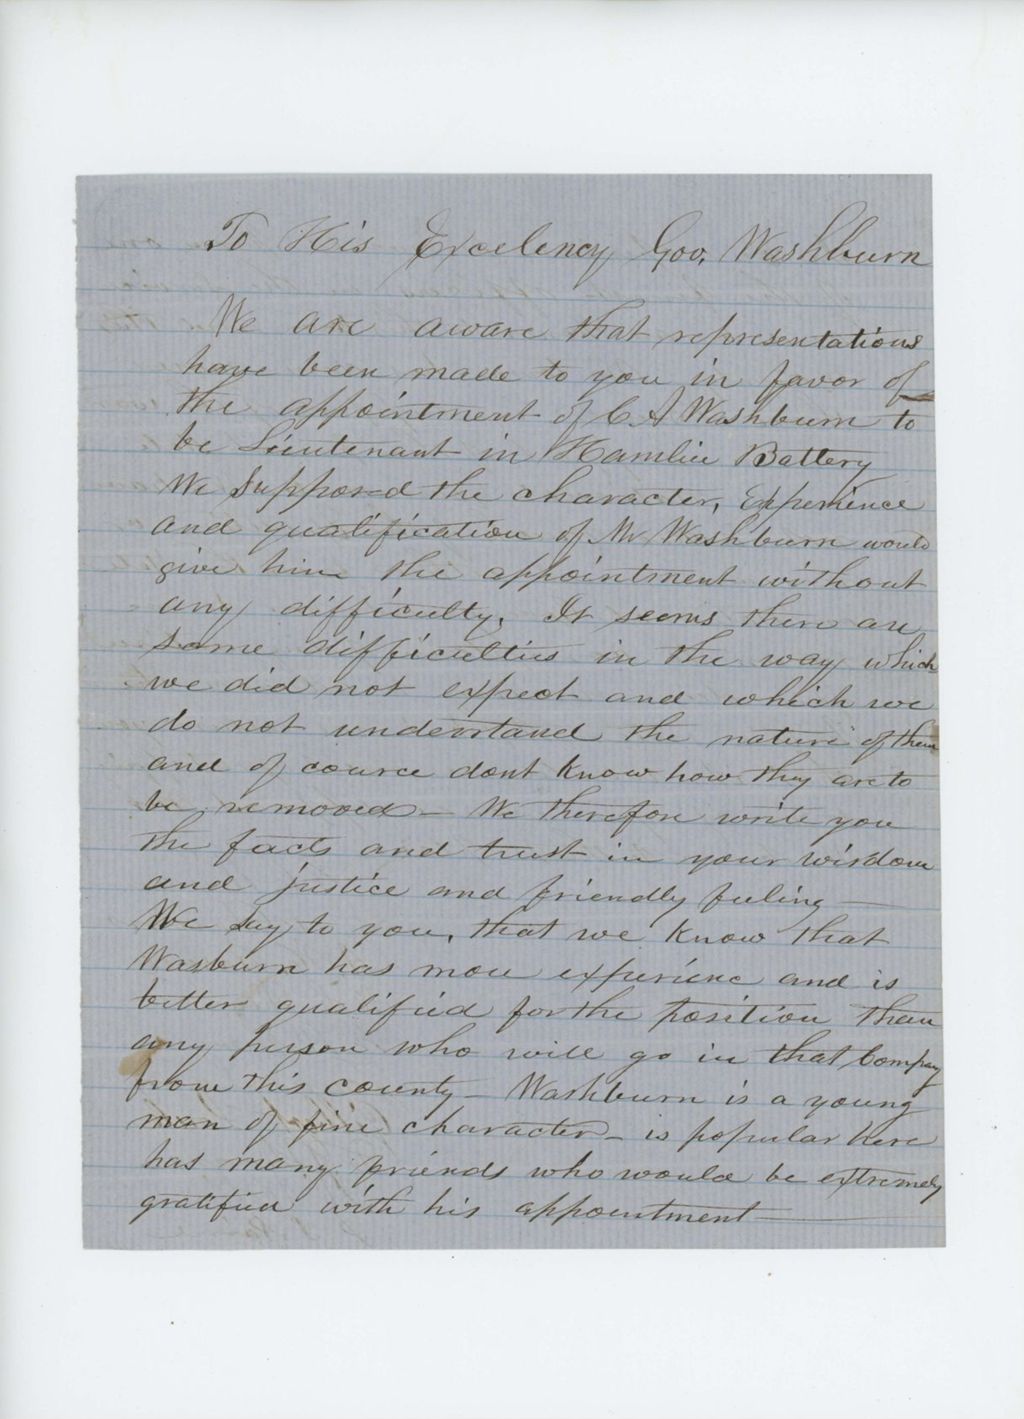 To His Excelency Gov. Washburn
We are aware that representations
have been made to you in favor of
the appointment of C. A Washburn to
be Lieutenant in Hamlin Battery
We supposed the character, Experience
and qualification of Mr Washburn would
give him the appointment without
any difficulty. It seems there are
some difficulties in the way which
we did not expect and which we
do not understand the nature of them
and of cource dont know how they are to
be removed — We therefore write you
the facts and trust in your wisdom
and justice and friendly feeling —
We say to you, that we know that
Wasburn has more experienc and is
better qualified for the position than
any person who will go in that Company
from this county — Washburn is a young
man of fine character — is popular here
has many friends who would be extremely
gratified with his appointment —